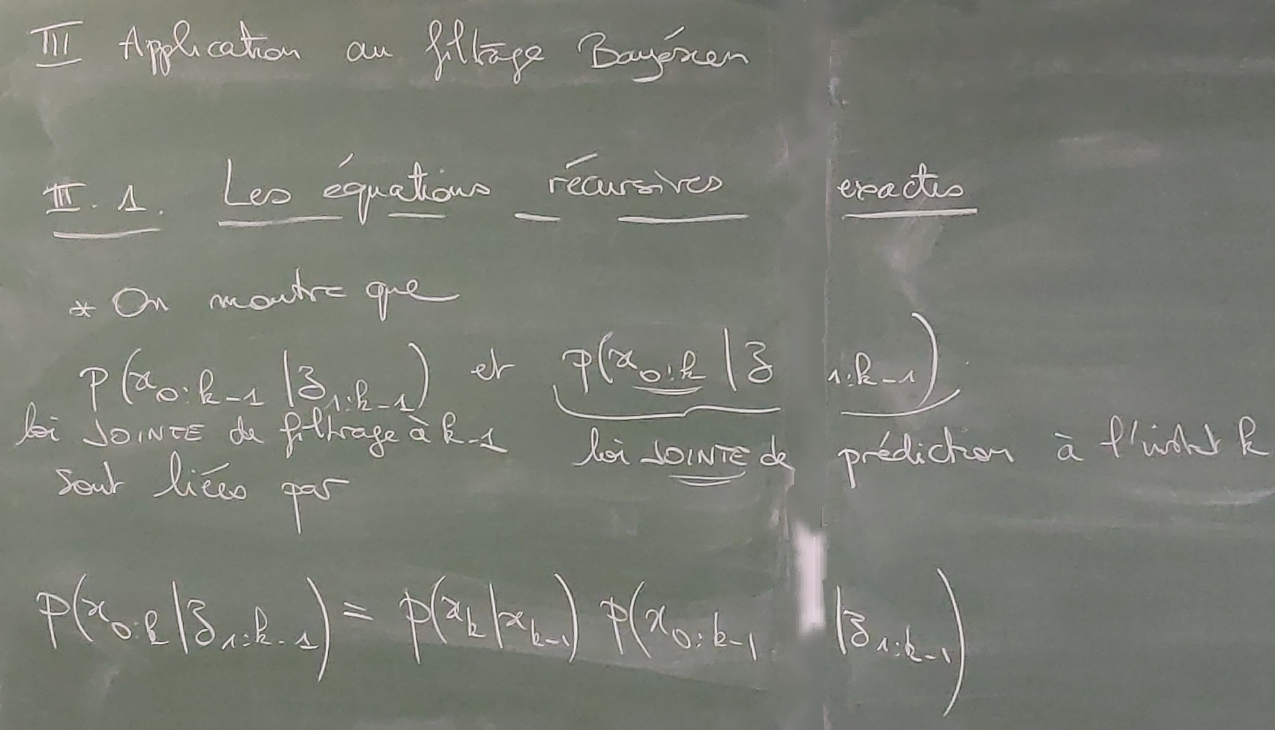 III Application au filtrage Bayésien
III. 1. Les équations récursives exactes
* On montre que
p(x_{0:k-1} | z_{1:k-1}) et p(x_{0:k} | z_{1:k-1})
loi JOINTE de filtrage à k-1 loi JOINTE de prédiction à l'instant k
sont liées par
p(x_{0:k} | z_{1:k-1}) = p(x_k | x_{k-1}) p(x_{0:k-1} | z_{1:k-1})